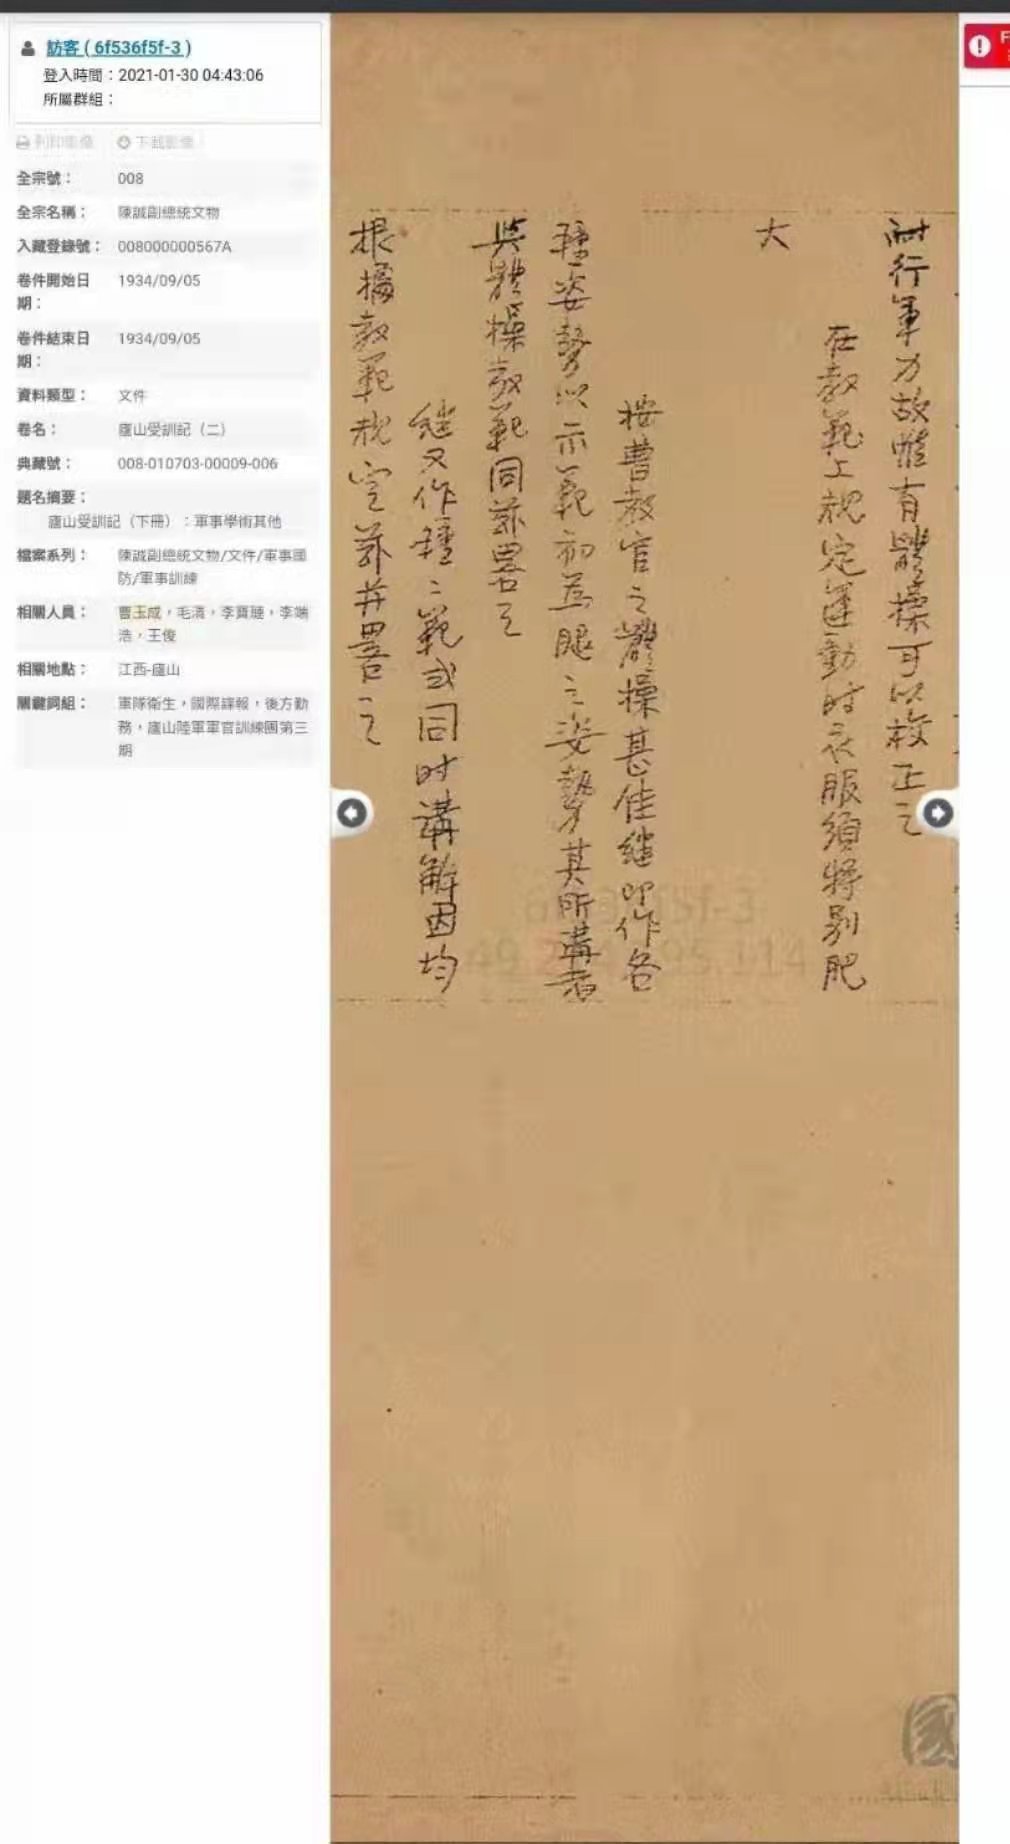 訪客 ( 6f536f5f-3 )
登入時間：2021-01-30 04:43:06
所屬群組：
列印影像 下載影像
全宗號： 008
全宗名稱： 陳誠副總統文物
入藏登錄號： 008000000567A
卷件開始日期： 1934/09/05
卷件結束日期： 1934/09/05
資料類型： 文件
卷名： 廬山受訓記（二）
典藏號： 008-010703-00009-006
題名摘要：
廬山受訓記（下冊）：軍事學術其他
檔案系列： 陳誠副總統文物/文件/軍事國防/軍事訓練
相關人員： 曹玉成，毛清，李寶璉，李端浩，王俊
相關地點： 江西-廬山
關鍵詞組： 軍隊衛生，國際諜報，後方勤務，廬山陸軍軍官訓練團第三期
耐行軍力故惟有體操可以校正之
在教範上規定運動時衣服須特別肥
大
按曹教官之體操甚佳繼即作各
種姿勢以示範初為腿之姿勢其所講者
與體操教範同茲畧之
繼又作種種範或同時講解因均
根據教範規定茲并畧之
國